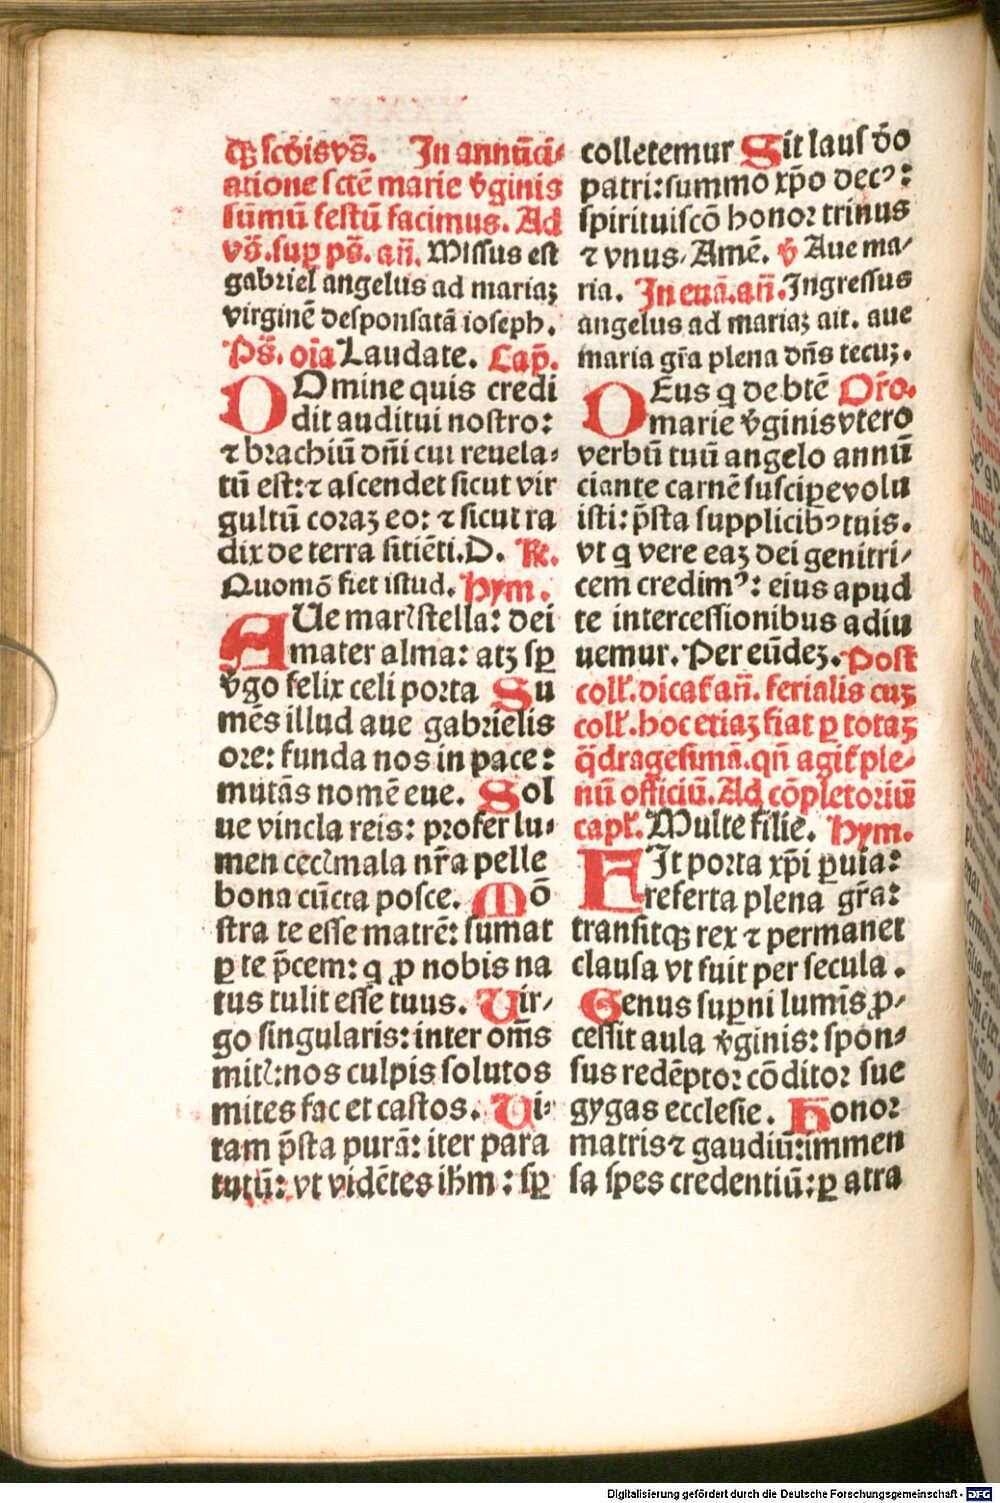 qꝫ scďis vš. In annūci-
atione sctē marie v̄ginis
sūmū festū facimus. Ad
vš. suꝑ pš. añ. Missus est
gabriel angelus ad mariaꝫ
virginē desponsatā ioseph.
Pš. oīa Laudate. Cap̄.
DOmine quis credi
dit auditui nostro:
⁊ brachiū dñi cui reuela-
tū est: ⁊ ascendet sicut vir
gultū coraꝫ eo: ⁊ sicut ra
dix de terra sitiēti. D. ℟.
Quomō fiet istud. Hym.
AUe marꝭ stella: dei
mater alma: atꝫ sꝑ
v̄go felix celi porta Su
mēs illud aue gabrielis
ore: funda nos in pace:
mutās nomē eue. Sol
ue vincla reis: profer lu-
men cecꝭ mala nr̄a pelle
bona cūcta posce. Mō
stra te esse matrē: sumat
ꝑ te p̄cem: q ꝓ nobis na
tus tulit esse tuus. Uir-
go singularis: inter om̄s
mitꝭ: nos culpis solutos
mites fac et castos. Ui-
tam p̄sta purā: iter para
tutū: vt vidētes ihm̄: sꝑ
colletemur Sit laus do
patri: summo xp̄o decꝰ:
spirituiscō honor trinus
⁊ vnus. Amē. ℣ Aue ma-
ria. In euā. añ. Ingressus
angelus ad mariaꝫ ait. aue
maria gr̄a plena dñs tecuꝫ.
DEus q de btē Or̄o.
marie v̄ginis vtero
verbū tuū angelo annū
ciante carnē suscipe volu
isti: p̄sta supplicibꝰ tuis.
vt q vere eaꝫ dei genitri-
cem credimꝰ: eius apud
te intercessionibus adiu
uemur. Per eūdeꝫ. Post
coll'. dicat' añ. ferialis cuꝫ
coll'. hoc etiaꝫ fiat ꝑ totaꝫ
q̄dragesimā. qñ agit' ple-
nū officiū. Ad cōpletoriū
capl'. Multe filie. Hym.
FIt porta xp̄i ꝑuia:
referta plena gr̄a:
transitqꝫ rex ⁊ permanet
clausa vt fuit per secula.
Genus suꝑni lumīs ꝓ-
cessit aula v̄ginis: spon-
sus redēptor cōditor sue
gygas ecclesie. Honor
matris ⁊ gaudiū: immen
sa spes credentiū: ꝑ atra
Digitalisierung gefördert durch die Deutsche Forschungsgemeinschaft - DFG